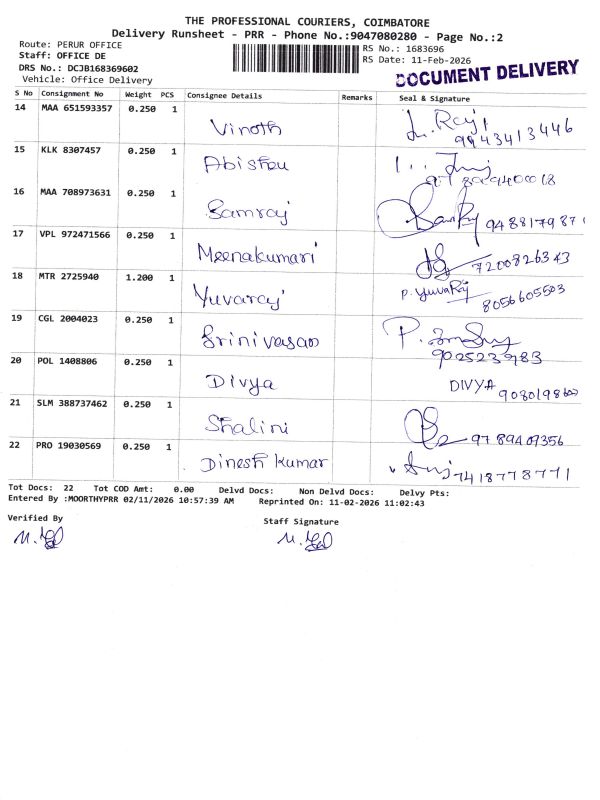 THE PROFESSIONAL COURIERS, COIMBATORE
Delivery Runsheet - PRR - Phone No.:9047080280 - Page No.:2
Route: PERUR OFFICE
RS No.: 1683696
Staff: OFFICE DE
RS Date: 11-Feb-2026
DRS No.: DCJB168369602
Vehicle: Office Delivery
DOCUMENT DELIVERY
S No Consignment No Weight PCS Consignee Details Remarks Seal & Signature
14 MAA 651593357 0.250 1 Vinoth 9943413446
15 KLK 8307457 0.250 1
16 MAA 708973631 0.250 1 Samraj
17 VPL 972471566 0.250 1 Meenakumari 7200826343
18 MTR 2725940 1.200 1 Yuvaraj P. YuvaRaj 8056605503
19 CGL 2004023 0.250 1 Srinivasan
20 POL 1408806 0.250 1 Divya DIVYA
21 SLM 388737462 0.250 1 Shalini 9789409356
22 PRO 19030569 0.250 1 Dinesh kumar 7418778771
Tot Docs: 22 Tot COD Amt: 0.00 Delvd Docs: Non Delvd Docs: Delvy Pts:
Entered By :MOORTHYPRR 02/11/2026 10:57:39 AM Reprinted On: 11-02-2026 11:02:43
Verified By
Staff Signature